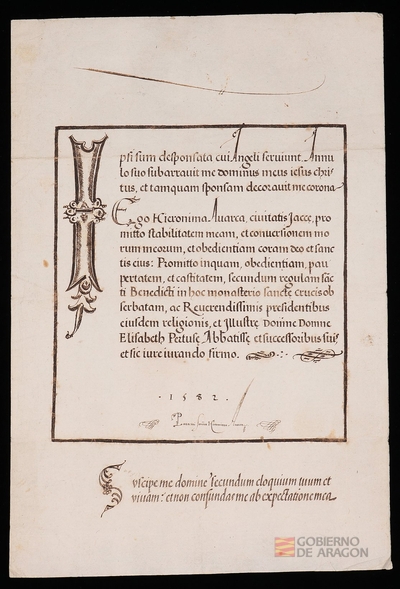 Ipsi sum desponsata cui Angeli seruiunt. Annu
lo suo subarrauit me dominus meus iesus chri-
stus, et tamquam sponsam decorauit me corona.
Ego Hieronima Auarca, ciuitatis Jacce, pro
mitto stabilitatem meam, et conuersionem mo
rum meorum, et obedientiam coram deo et sanc
tis eius: Promitto inquam, obedientiam, pau
pertatem, et castitatem, secundum regulam sāc
ti Benedicti in hoc monasterio sancte crucis ob
serbatam, ac Reverendissimis presidentibus
eiusdem religionis, et Illustre Domine Domne
Elisabeth Pertuse Abbatisse et successoribus suis
et sic iure iurando firmo.
· 1582 ·
Suscipe me domine secundum eloquium tuum et
viuam: et non confundas me ab expectatione mea
GOBIERNO
DE ARAGON